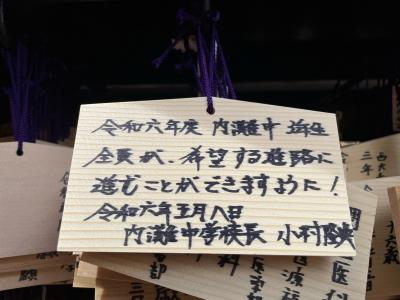 令和六年度 内灘中 3年生
全員が、希望する進路に
進むことができますように!
令和六年五月八日
内灘中学校長 小村
西大
三年
十六歳